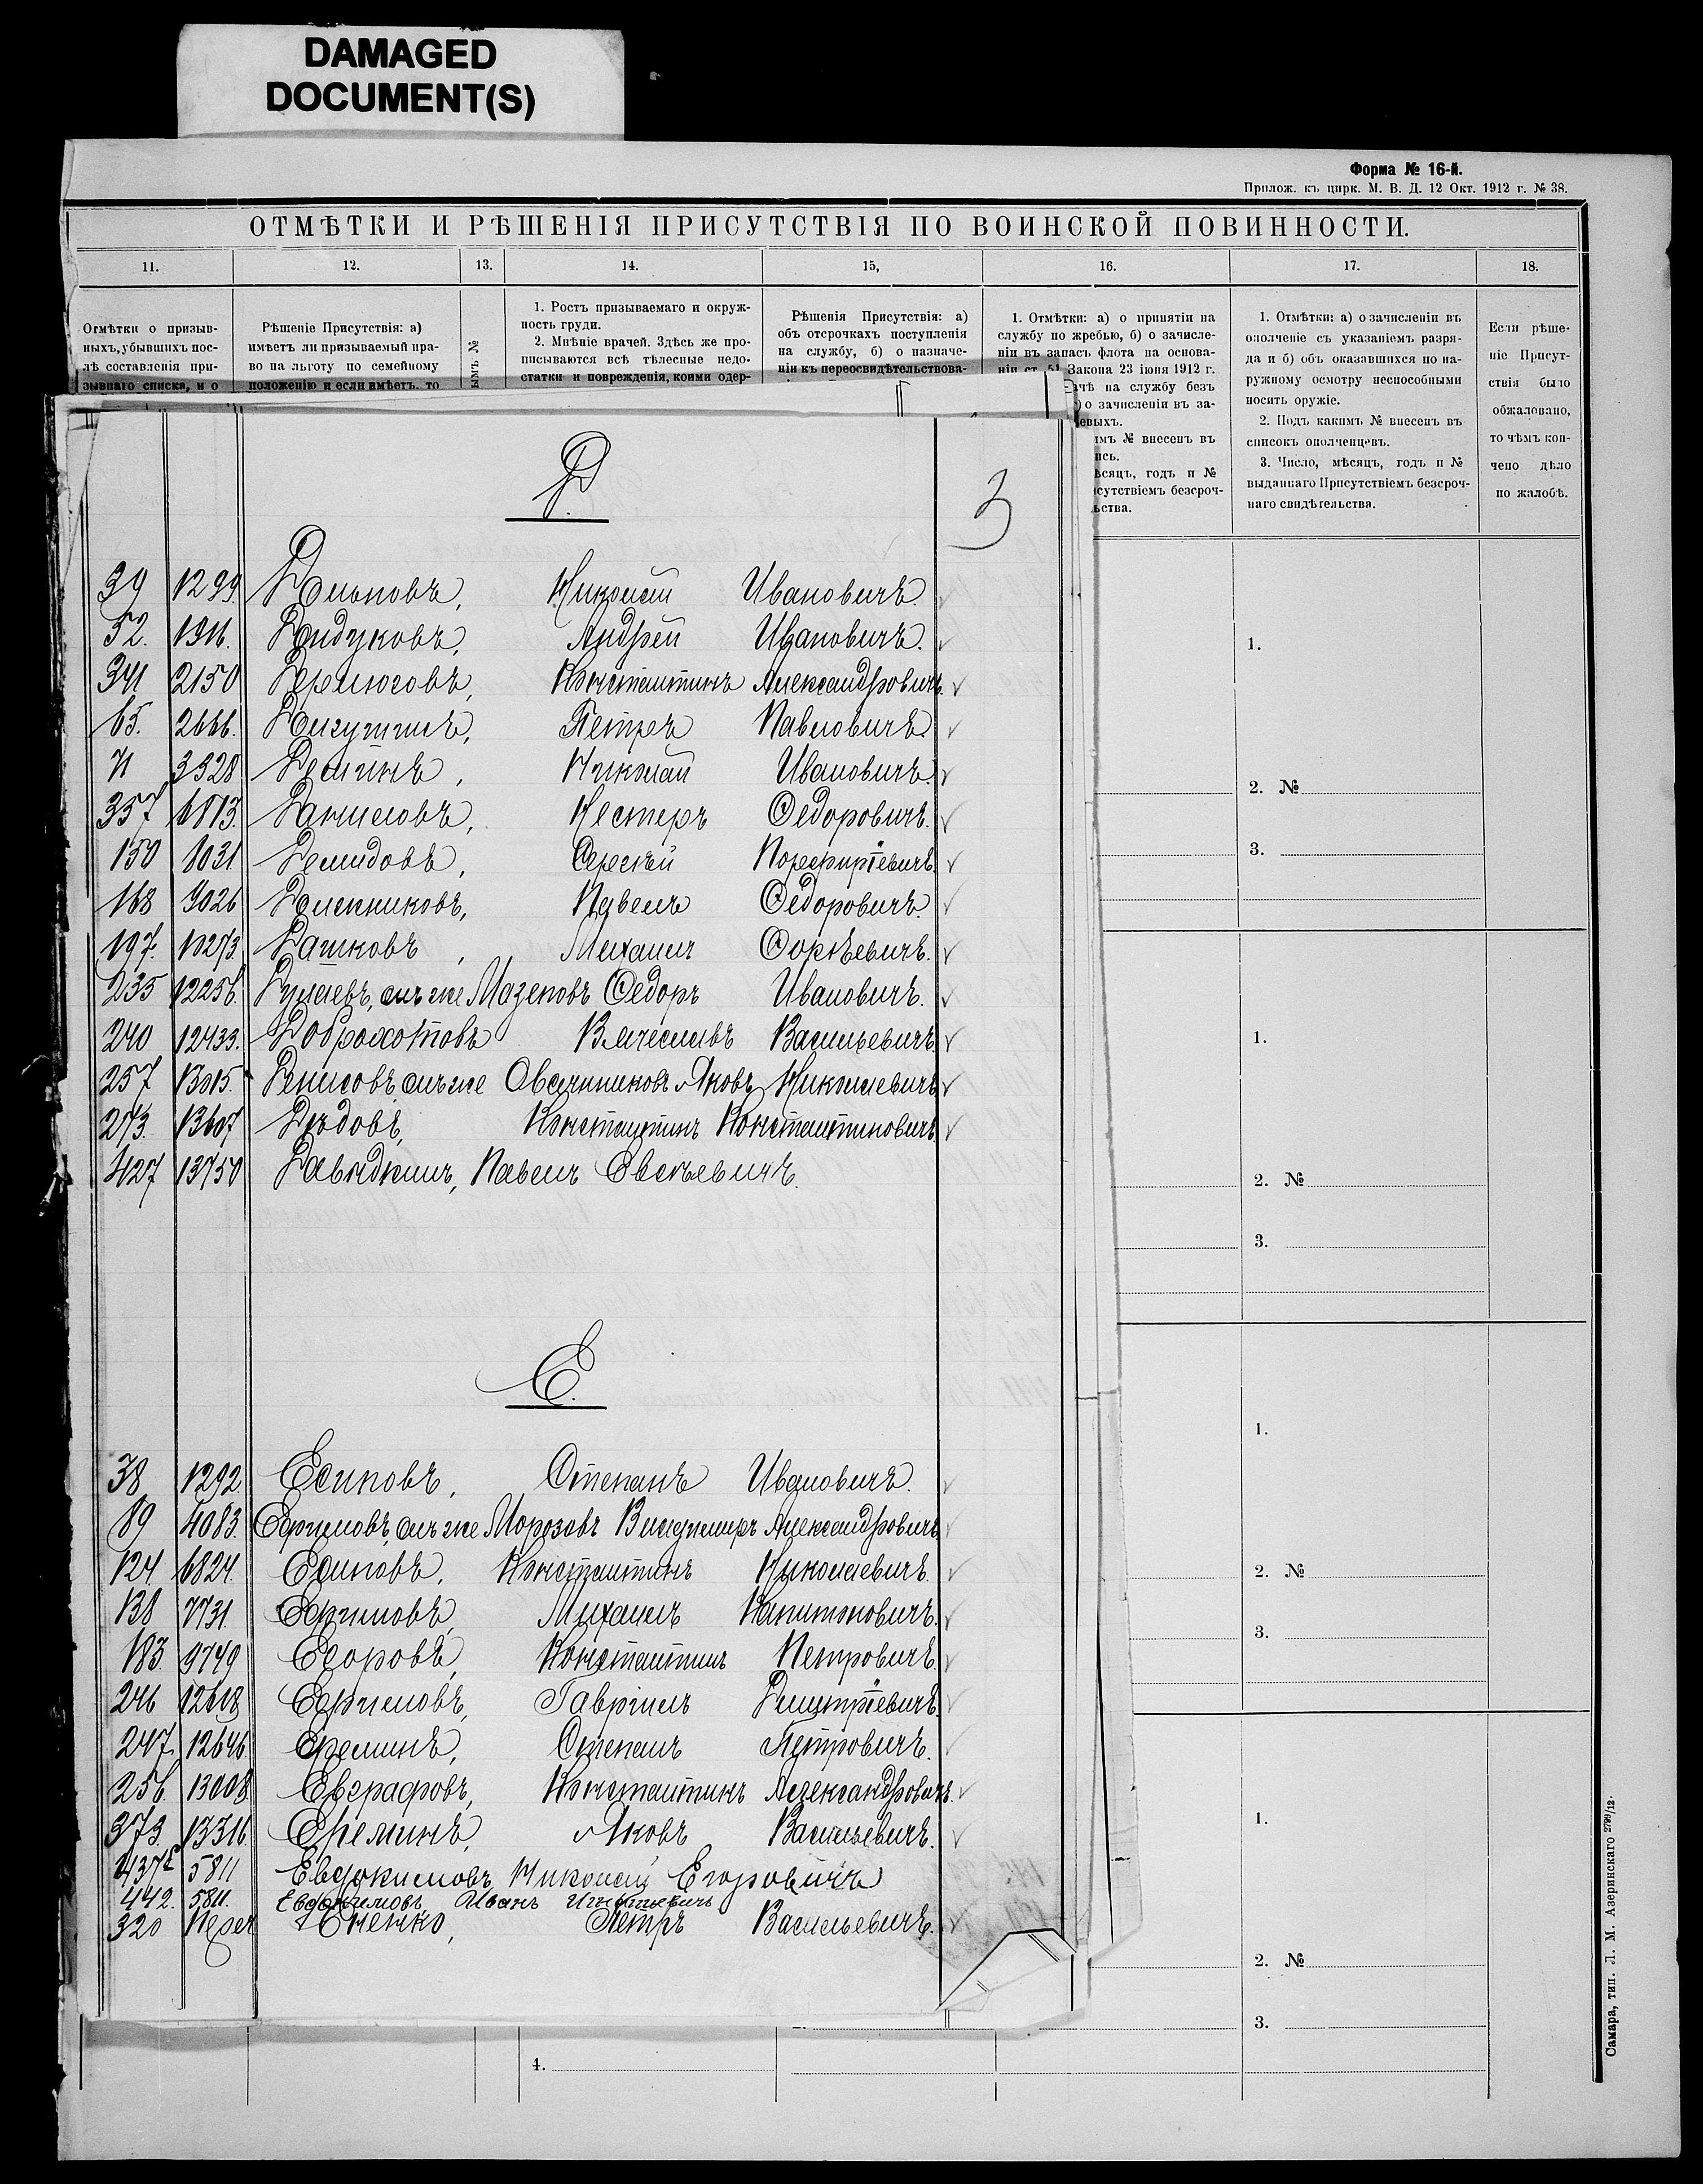 DAMAGED
DOCUMENT(S)
Форма № 16-й.
Прилож. къ цирк. М. В. Д. 12 Окт. 1912 г. № 38.
ОТМѢТКИ И РѢШЕНІЯ ПРИСУТСТВІЯ ПО ВОИНСКОЙ ПОВИННОСТИ.
11. 12. 13. 14. 15, 16. 17. 18.
Отмѣтки о призыв-
ныхъ, убывшихъ пос-
лѣ составленія при-
зывнаго списка, и о
Рѣшеніе Присутствія: а)
имѣетъ ли призываемый пра-
во на льготу по семейному
положенію и если имѣетъ, то
ымъ №
1. Ростъ призываемаго и окруж-
ность груди.
2. Мнѣніе врачей. Здѣсь же про-
писываются всѣ тѣлесные недо-
статки и поврежденія, коими одер-
Рѣшенія Присутствія: а)
объ отсрочкахъ поступленія
на службу, б) о назначе-
ніи къ переосвидѣтельствова-
1. Отмѣтки: а) о принятіи на
службу по жребью, б) о зачисле-
ніи въ запасъ флота на основа-
ніи ст. 51 Закона 23 іюня 1912 г.
ачѣ на службу безъ
) о зачисленіи въ за-
евыхъ.
имъ № внесенъ въ
ись.
ѣсяцъ, годъ и №
исутствіемъ безсроч-
ьства.
1. Отмѣтки: а) о зачисленіи въ
ополченіе съ указаніемъ разря-
да и б) объ оказавшихся по на-
ружному осмотру неспособными
носить оружіе.
2. Подъ какимъ № внесенъ въ
списокъ ополченцевъ.
3. Число, мѣсяцъ, годъ и №
выданнаго Присутствіемъ безсроч-
наго свидѣтельства.
Если рѣше-
ніе Присут-
ствія было
обжаловано,
то чѣмъ кон-
чено дѣло
по жалобѣ.
Д.
3
39 1299. Николай Ивановичъ.
52. 1916. Андрей Ивановичъ.
341 2150 Константинъ Александровичъ.
65. 2666. Петръ Павловичъ
71 3328 Николай Ивановичъ
357 6813. Даниловъ, Нестеръ Федоровичъ.
150 8031. Демидовъ, Сергѣй Порфирьевичъ.
168 9026 Должниковъ, Павелъ Федоровичъ.
197. 10273. Дашковъ, Михаилъ Сергѣевичъ.
235 12256. Дулаевъ, онъ же Мазековъ Федоръ Ивановичъ.
240 12433. Доброхотовъ Вячеславъ Васильевичъ
257 13015. Денисовъ, онъ же Овсянниковъ Яковъ Николаевичъ
273. 13607 Дѣдовъ, Константинъ Константиновичъ
427 13750 Давыдкинъ, Павелъ
Е.
38 1292. Есиповъ, Степанъ Ивановичъ.
89 4083. Ефимовъ, онъ же Морозовъ Владимиръ Александровичъ
124. 6824. Есиповъ, Константинъ Николаевичъ.
138 7731. Ефимовъ, Михаилъ Капитоновичъ.
183. 9749 Егоровъ, Константинъ Петровичъ.
246 12618 Ефимовъ, Гавріилъ Дмитріевичъ.
247. 12646. Ереминъ, Степанъ Петровичъ.
256. 13008. Евграфовъ, Константинъ Александровичъ.
373. 13316. Ереминъ, Яковъ Васильевичъ.
437 5811 Евдокимовъ, Николай Егоровичъ
442. 5811. Евдокимовъ Иванъ Игнатьевичъ
320 Петръ Васильевичъ.
1.
2. №
3.
1.
2. №
3.
1.
2. №
3.
1.
2. №
3.
4.
Самара, тип. Л. М. Азеринскаго 2799/12.